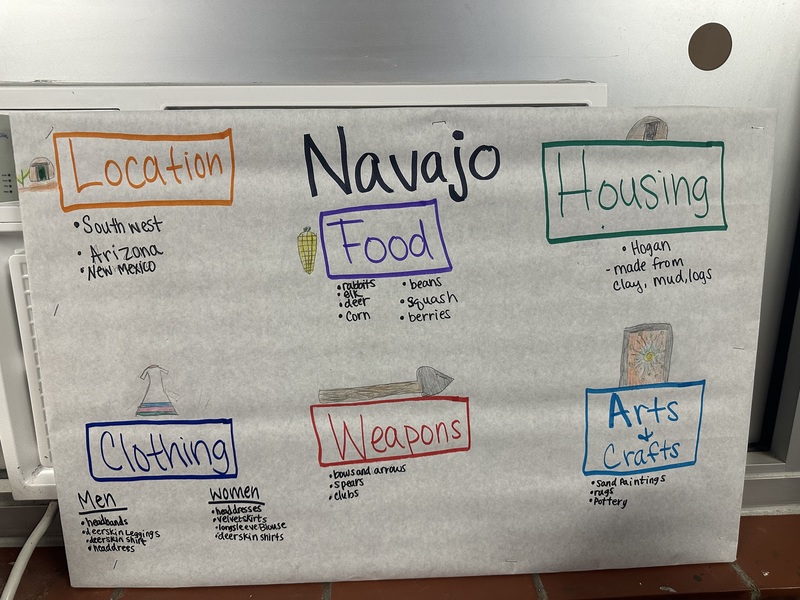 Navajo
Location
• Southwest
• Arizona
• New Mexico
Food
• rabbits
• elk
• deer
• Corn
• beans
• Squash
• berries
Housing
• Hogan
- made from
clay, mud, logs
Clothing
Men
• headbands
• deerskin Leggings
• deerskin shirt
• headdress
Women
• headdresses
• velvet skirts
• longsleeve Blouse
• deerskin shirts
Weapons
• bows and arrows
• spears
• clubs
Arts
&
Crafts
• Sand Paintings
• rugs
• Pottery